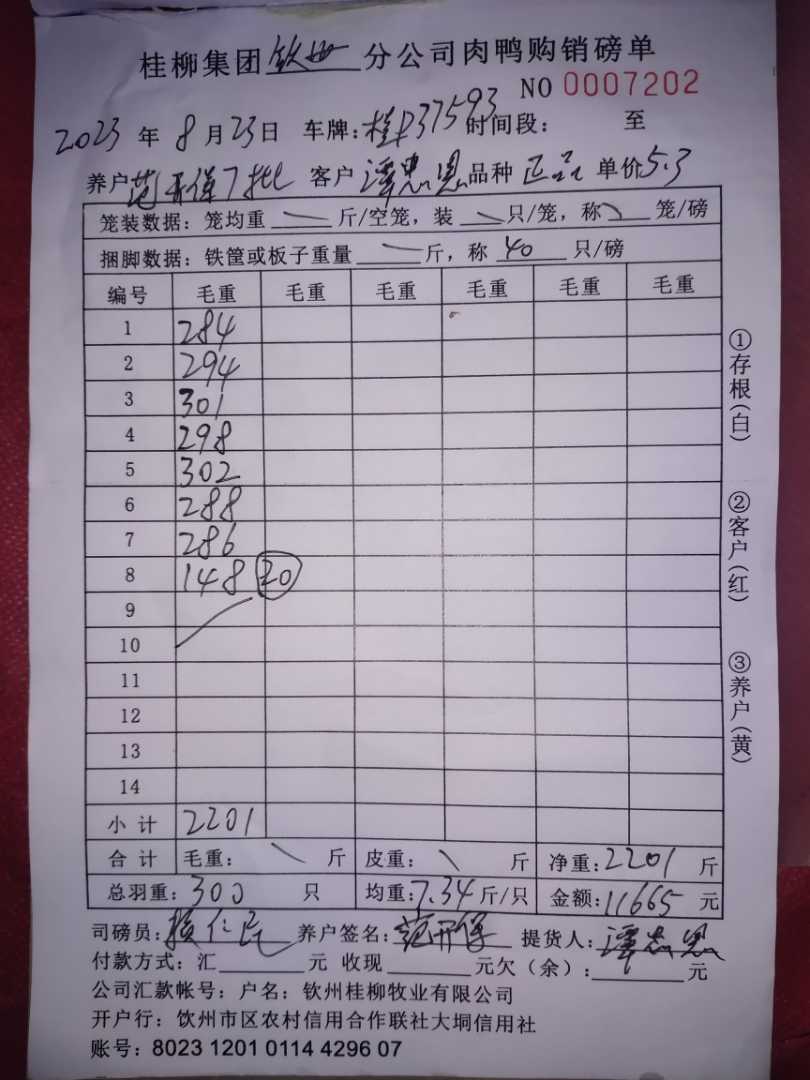 桂柳集团钦州分公司肉鸭购销磅单
NO 0007202
2023年8月23日 车牌:桂P37593 时间段: 至
养户范开保7批 客户谭忠恩 品种正品 单价5.3
笼装数据:笼均重 斤/空笼,装 只/笼,称 笼/磅
捆脚数据:铁筐或板子重量 斤,称 40 只/磅
编号 毛重 毛重 毛重 毛重 毛重 毛重
1 284
2 294
3 301
4 298
5 302
6 288
7 286
8 148 20
9
10
11
12
13
14
小计 2201
合计 毛重: 斤 皮重: 斤 净重:2201斤
总羽重:300 只 均重:7.34斤/只 金额:11665元
司磅员: 仁民 养户签名:范开保 提货人:谭忠恩
付款方式:汇 元 收现 元欠(余): 元
公司汇款帐号:户名:钦州桂柳牧业有限公司
开户行:饮州市区农村信用合作联社大垌信用社
账号:8023 1201 0114 4296 07
①存根(白)
②客户(红)
③养户(黄)